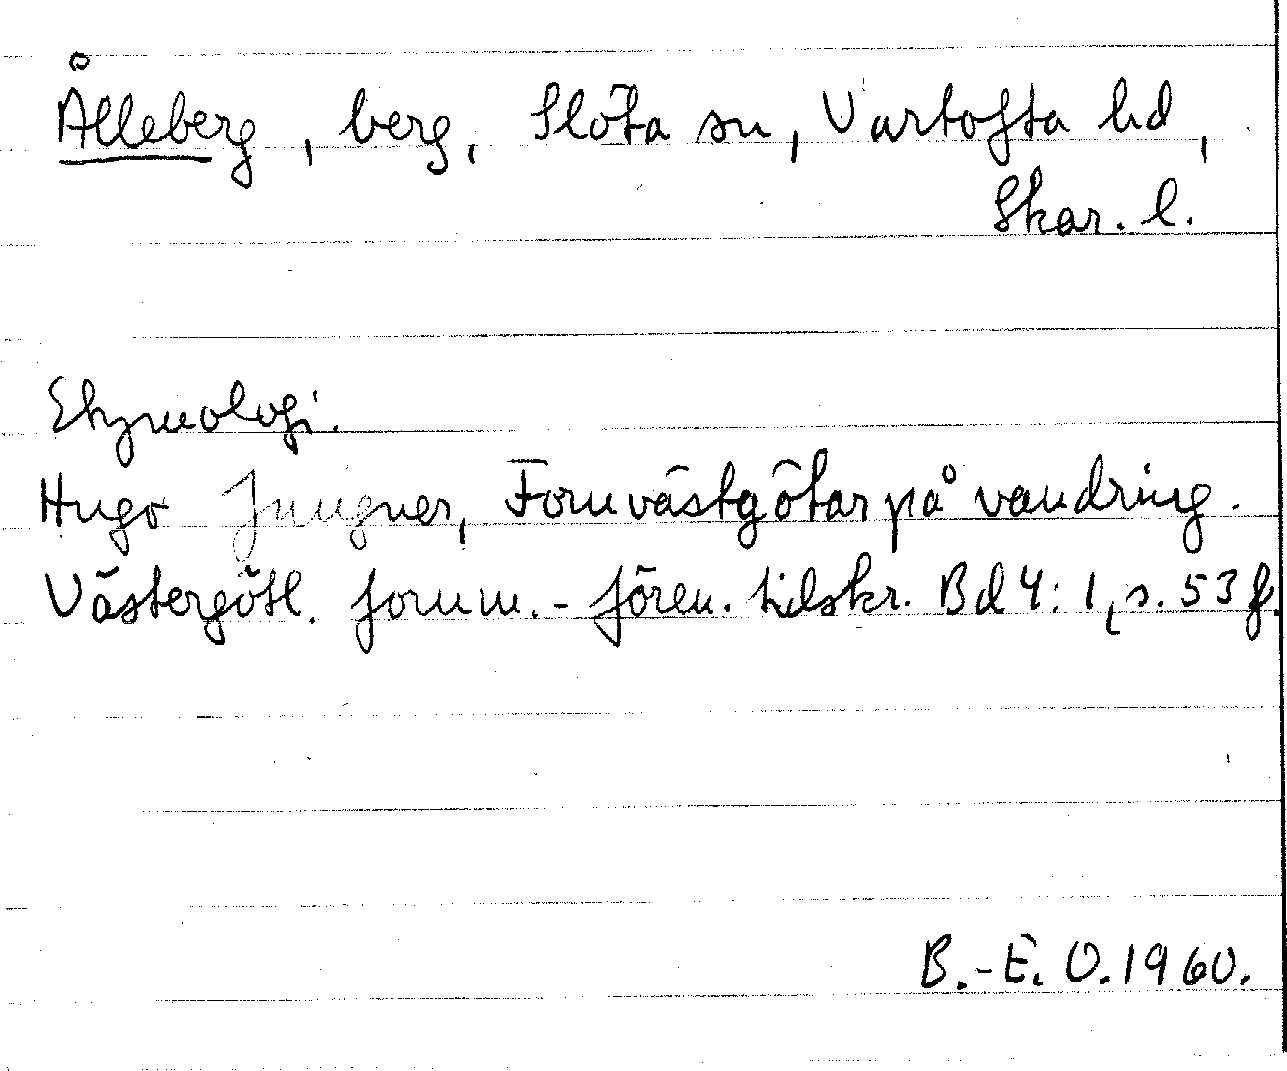 Ålleberg, berg, Slöta sn, Vartofta hd,
Skar. l.
Etymologi.
Hugo Jungner, Fornvästgötar på vandring.
Västergötl. fornm.-fören. tidskr. Bd 4:1, s. 53 f.
B.-E. O. 1960.